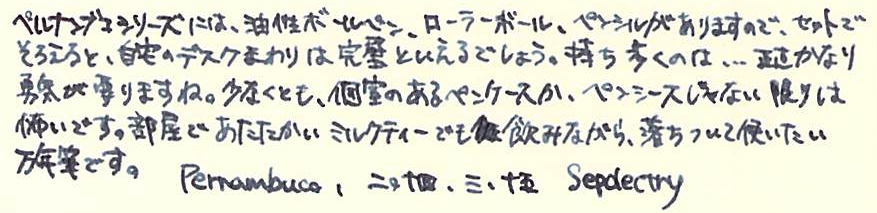 ペルナンブコシリーズには、油性ボールペン、ローラーボール、ペンシルがありますので、セットで
そろえると、自宅のデスクまわりは完璧といえるでしょう。持ち歩くのは…正直かなり
勇気が要りますね。少なくとも、個室のあるペンケースか、ペンシースじゃない限りは
怖いです。部屋であたたかいミルクティーでも飲みながら、落ちついて使いたい
万年筆です。
Pernambuco,